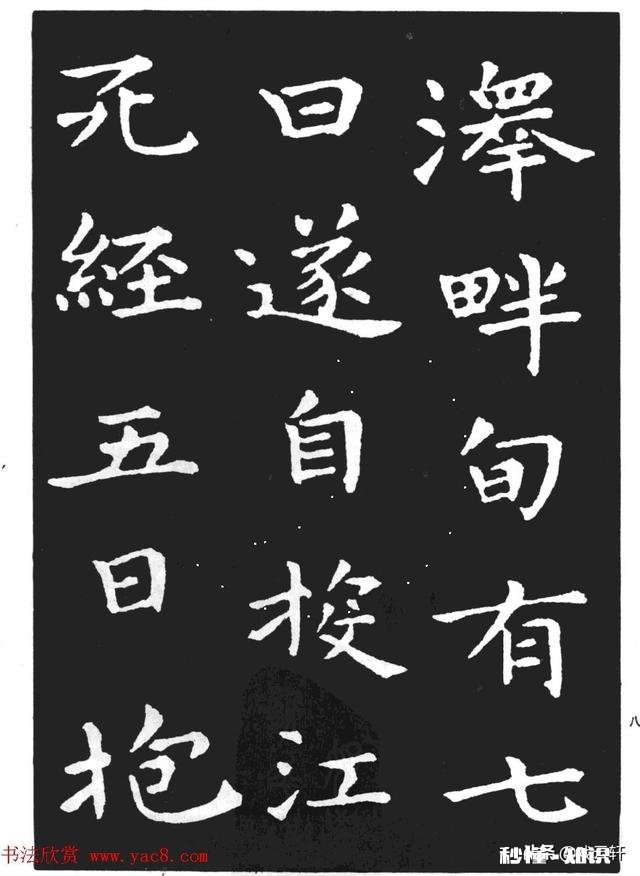 澤畔旬有七
日遂自投江
死經五日抱
八
书法欣赏 www.yac8.com
秒懂·知识